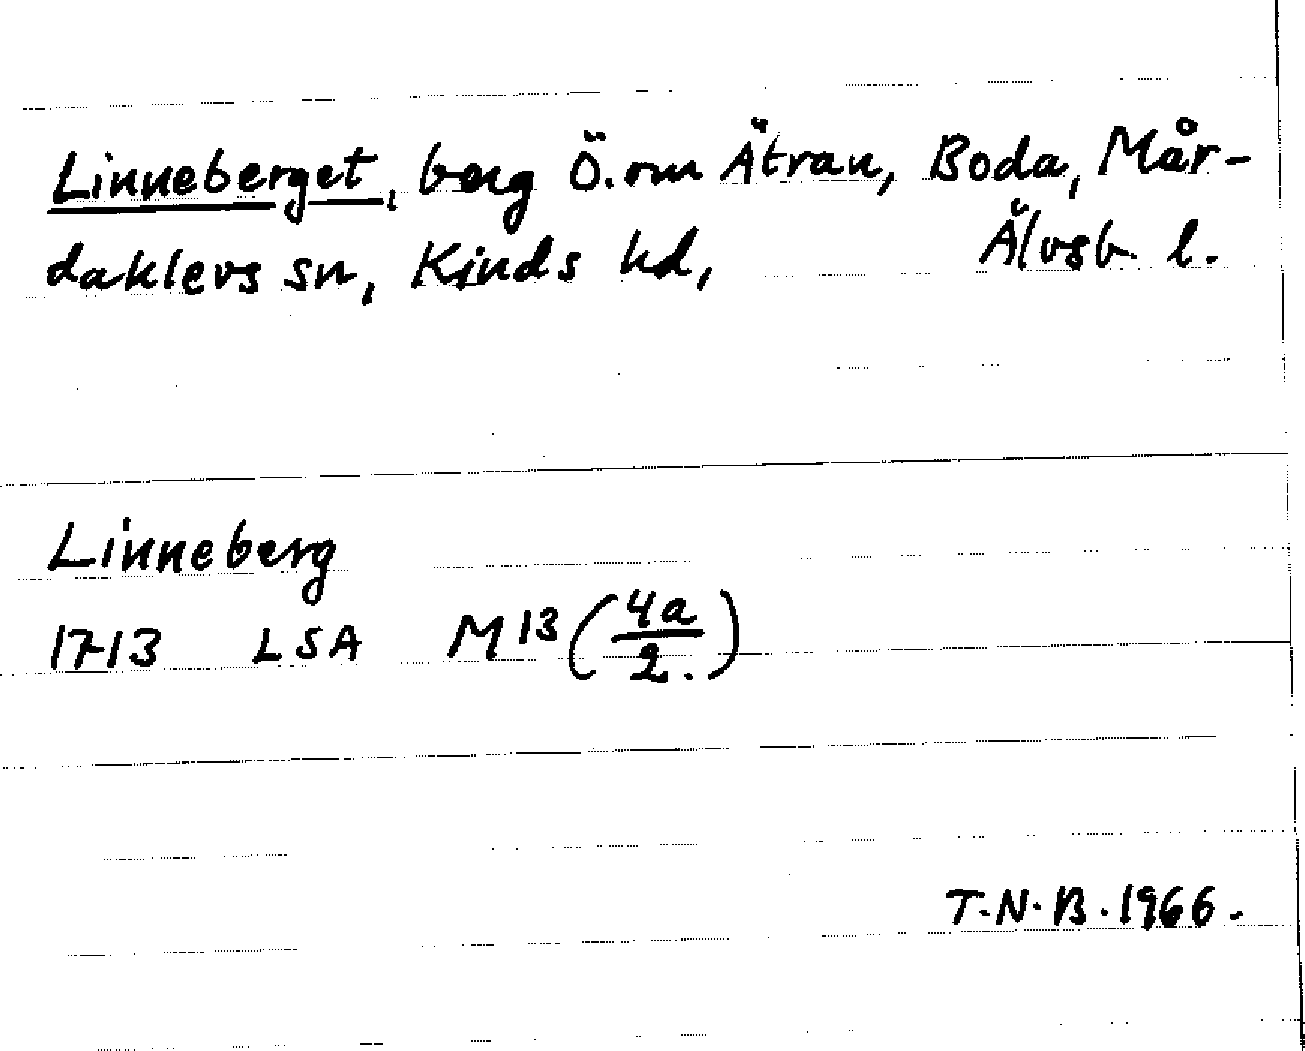 Linneberget, berg Ö. om Ätran, Boda, Mår-
daklevs sn, Kinds hd, Älvsb. l.
Linneberg
1713 LSA M13 (4a/2.)
T.N.B. 1966.